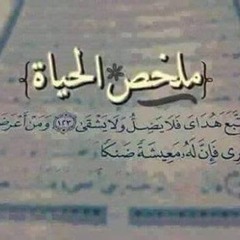 {ملخص * الحياة}
تَّبَعَ هُدَاىَ فَلَا يَضِلُّ وَلَا يَشْقَىٰ ١٢٣ وَمَنْ أَعْرَضَ
رِى فَإِنَّ لَهُۥ مَعِيشَةً ضَنكًا